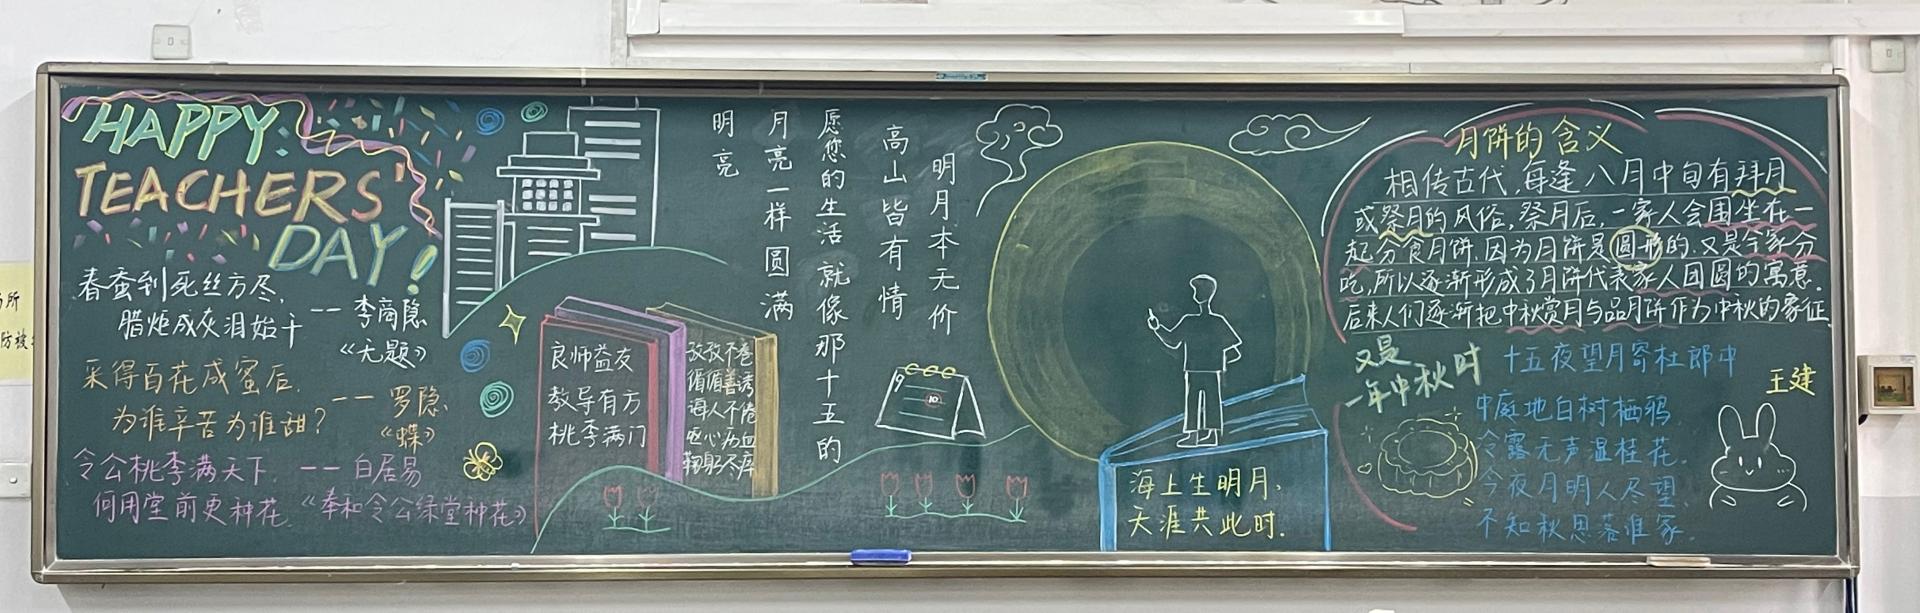 HAPPY
TEACHERS'
DAY!
春蚕到死丝方尽,
腊炬成灰泪始干
——李商隐
《无题》
采得百花成蜜后,
为谁辛苦为谁甜?
——罗隐
《蝶》
令公桃李满天下. ——白居易
何用堂前更种花.《奉和令公绿堂种花》
良师益友
教导有方
桃李满门
孜孜不卷
循循善诱
诲人不倦
呕心为血
鞠躬尽瘁
明月本无价
高山皆有情
愿您的生活就像那十五的
月亮一样圆满
明亮
9
10
海上生明月、
天涯共此时.
月饼的含义
相传古代,每逢八月中旬有拜月
或祭月的风俗,祭月后,一家人会围坐在一
起分食月饼.因为月饼是圆形的.又是全家分
吃,所以逐渐形成了月饼代表家人团圆的寓意.
后来人们逐渐把中秋赏月与品月饼作为中秋的象征.
又是
一年中秋时
十五夜望月寄杜郎中
王建
中庭地白树栖鸦.
冷露无声湿桂花.
今夜月明人尽望、
不知秋思落谁家.
所
防被